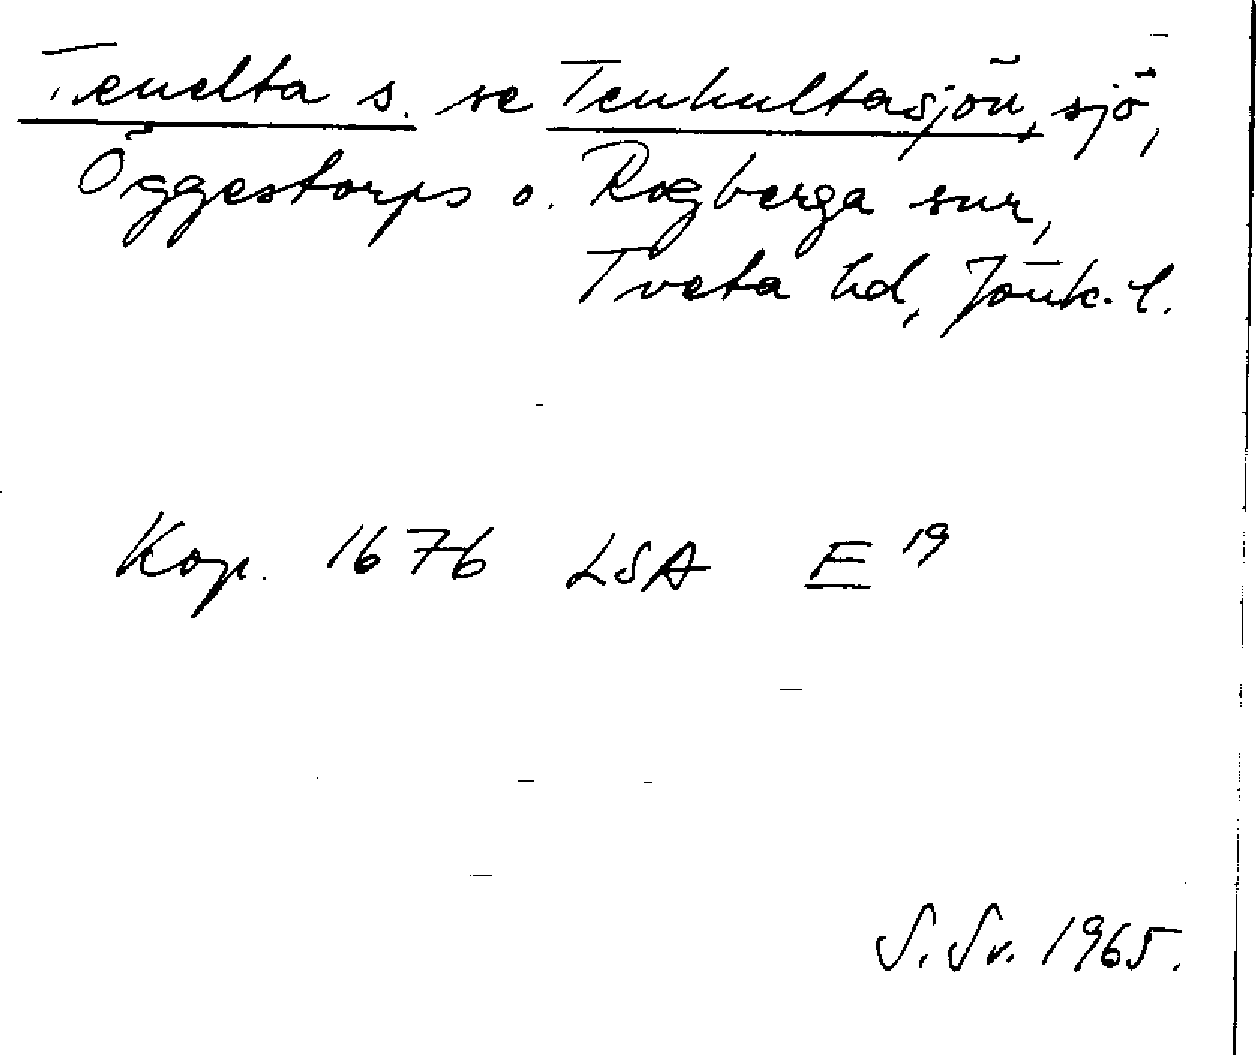 Tenelta s. se Tenhultasjön, sjö,
Öggestorps o. Rogberga snr,
Tveta hd, Jönk. l.
Kop. 1676 LSA E 19
S. Sv. 1965.